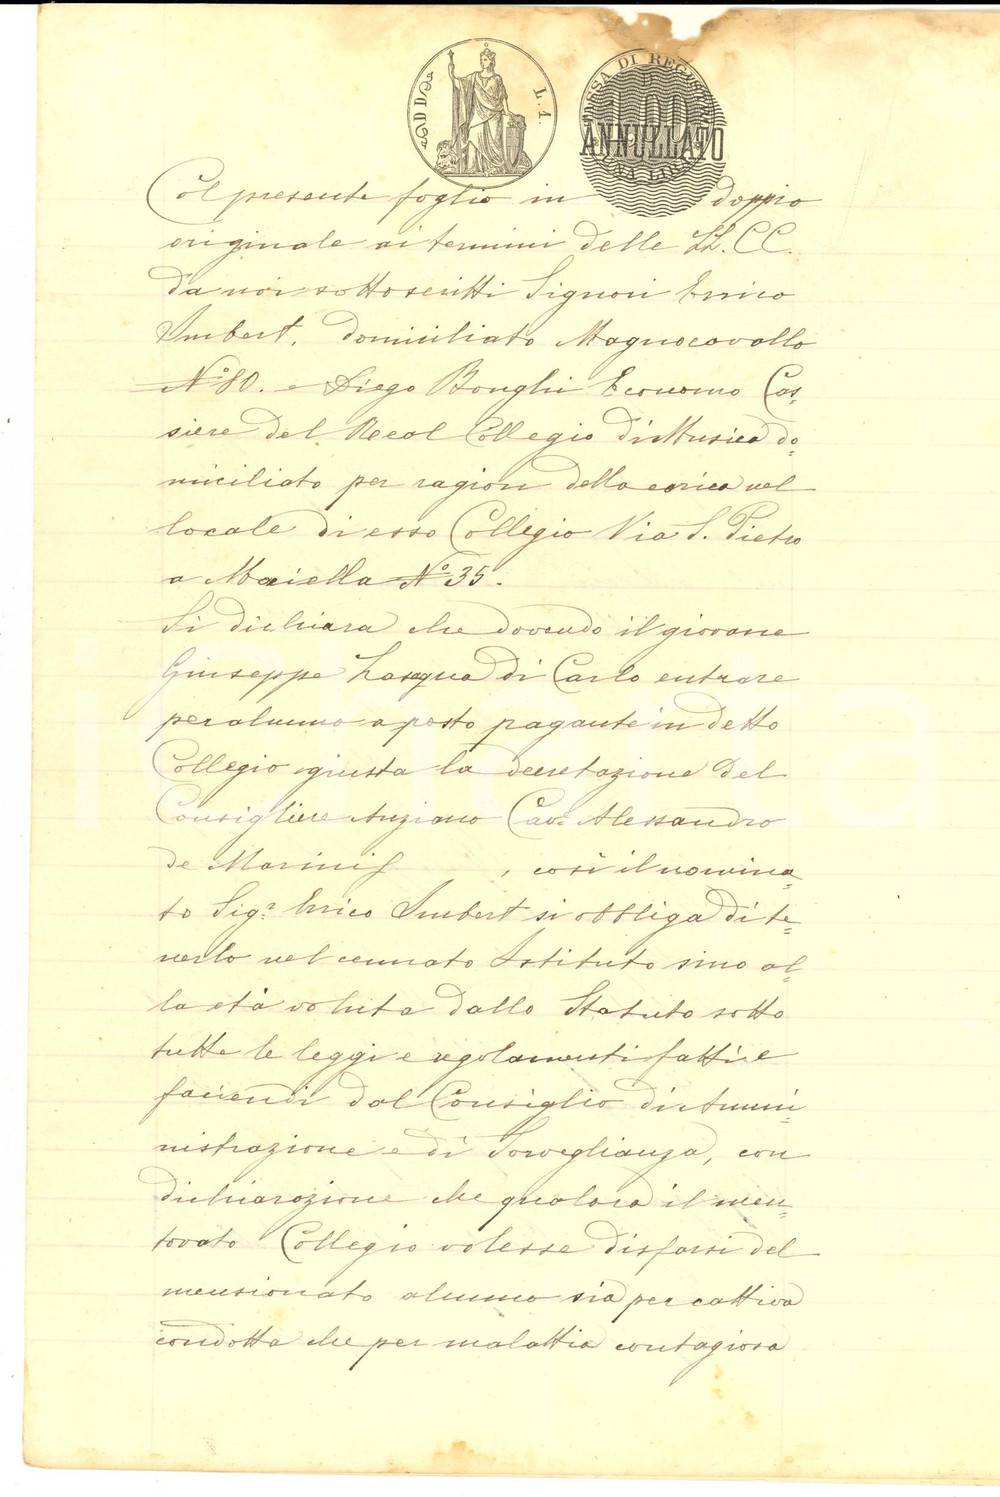 L. 1.
TASSA DI REGISTRO
1,00
ANNULLATO
UNA LIRA
Col presente foglio in doppio
originale ai termini delle LL. CC.
da noi sottoscritti Signori Errico
Imbert, domiciliato Magnocavallo
N.° 80. e Diego Bonghi Economo Cas=
siere del Real Collegio di Musica do=
miciliato per ragion della carica nel
locale di esso Collegio Via S. Pietro
a Maiella N.° 35.
Si dichiara che dovendo il giovane
Giuseppe Lasqua di Carlo entrare
per alunno a posto pagante in detto
Collegio giusta la decretazione del
Consigliere Anziano Cav. Alessandro
de Marinis , così il nomina=
to Sig.r Errico Imbert si obbliga di te=
nerlo nel cennato Istituto sino al=
la età voluta dallo Statuto sotto
tutte le leggi e regolamenti fatti e
faciendi dal Consiglio di Ammi=
nistrazione e di Sorveglianza, con
dichiarazione che qualora il men=
tovato Collegio volesse disfarsi del
mensionato alunno sia per cattiva
condotta che per malattia contagiosa